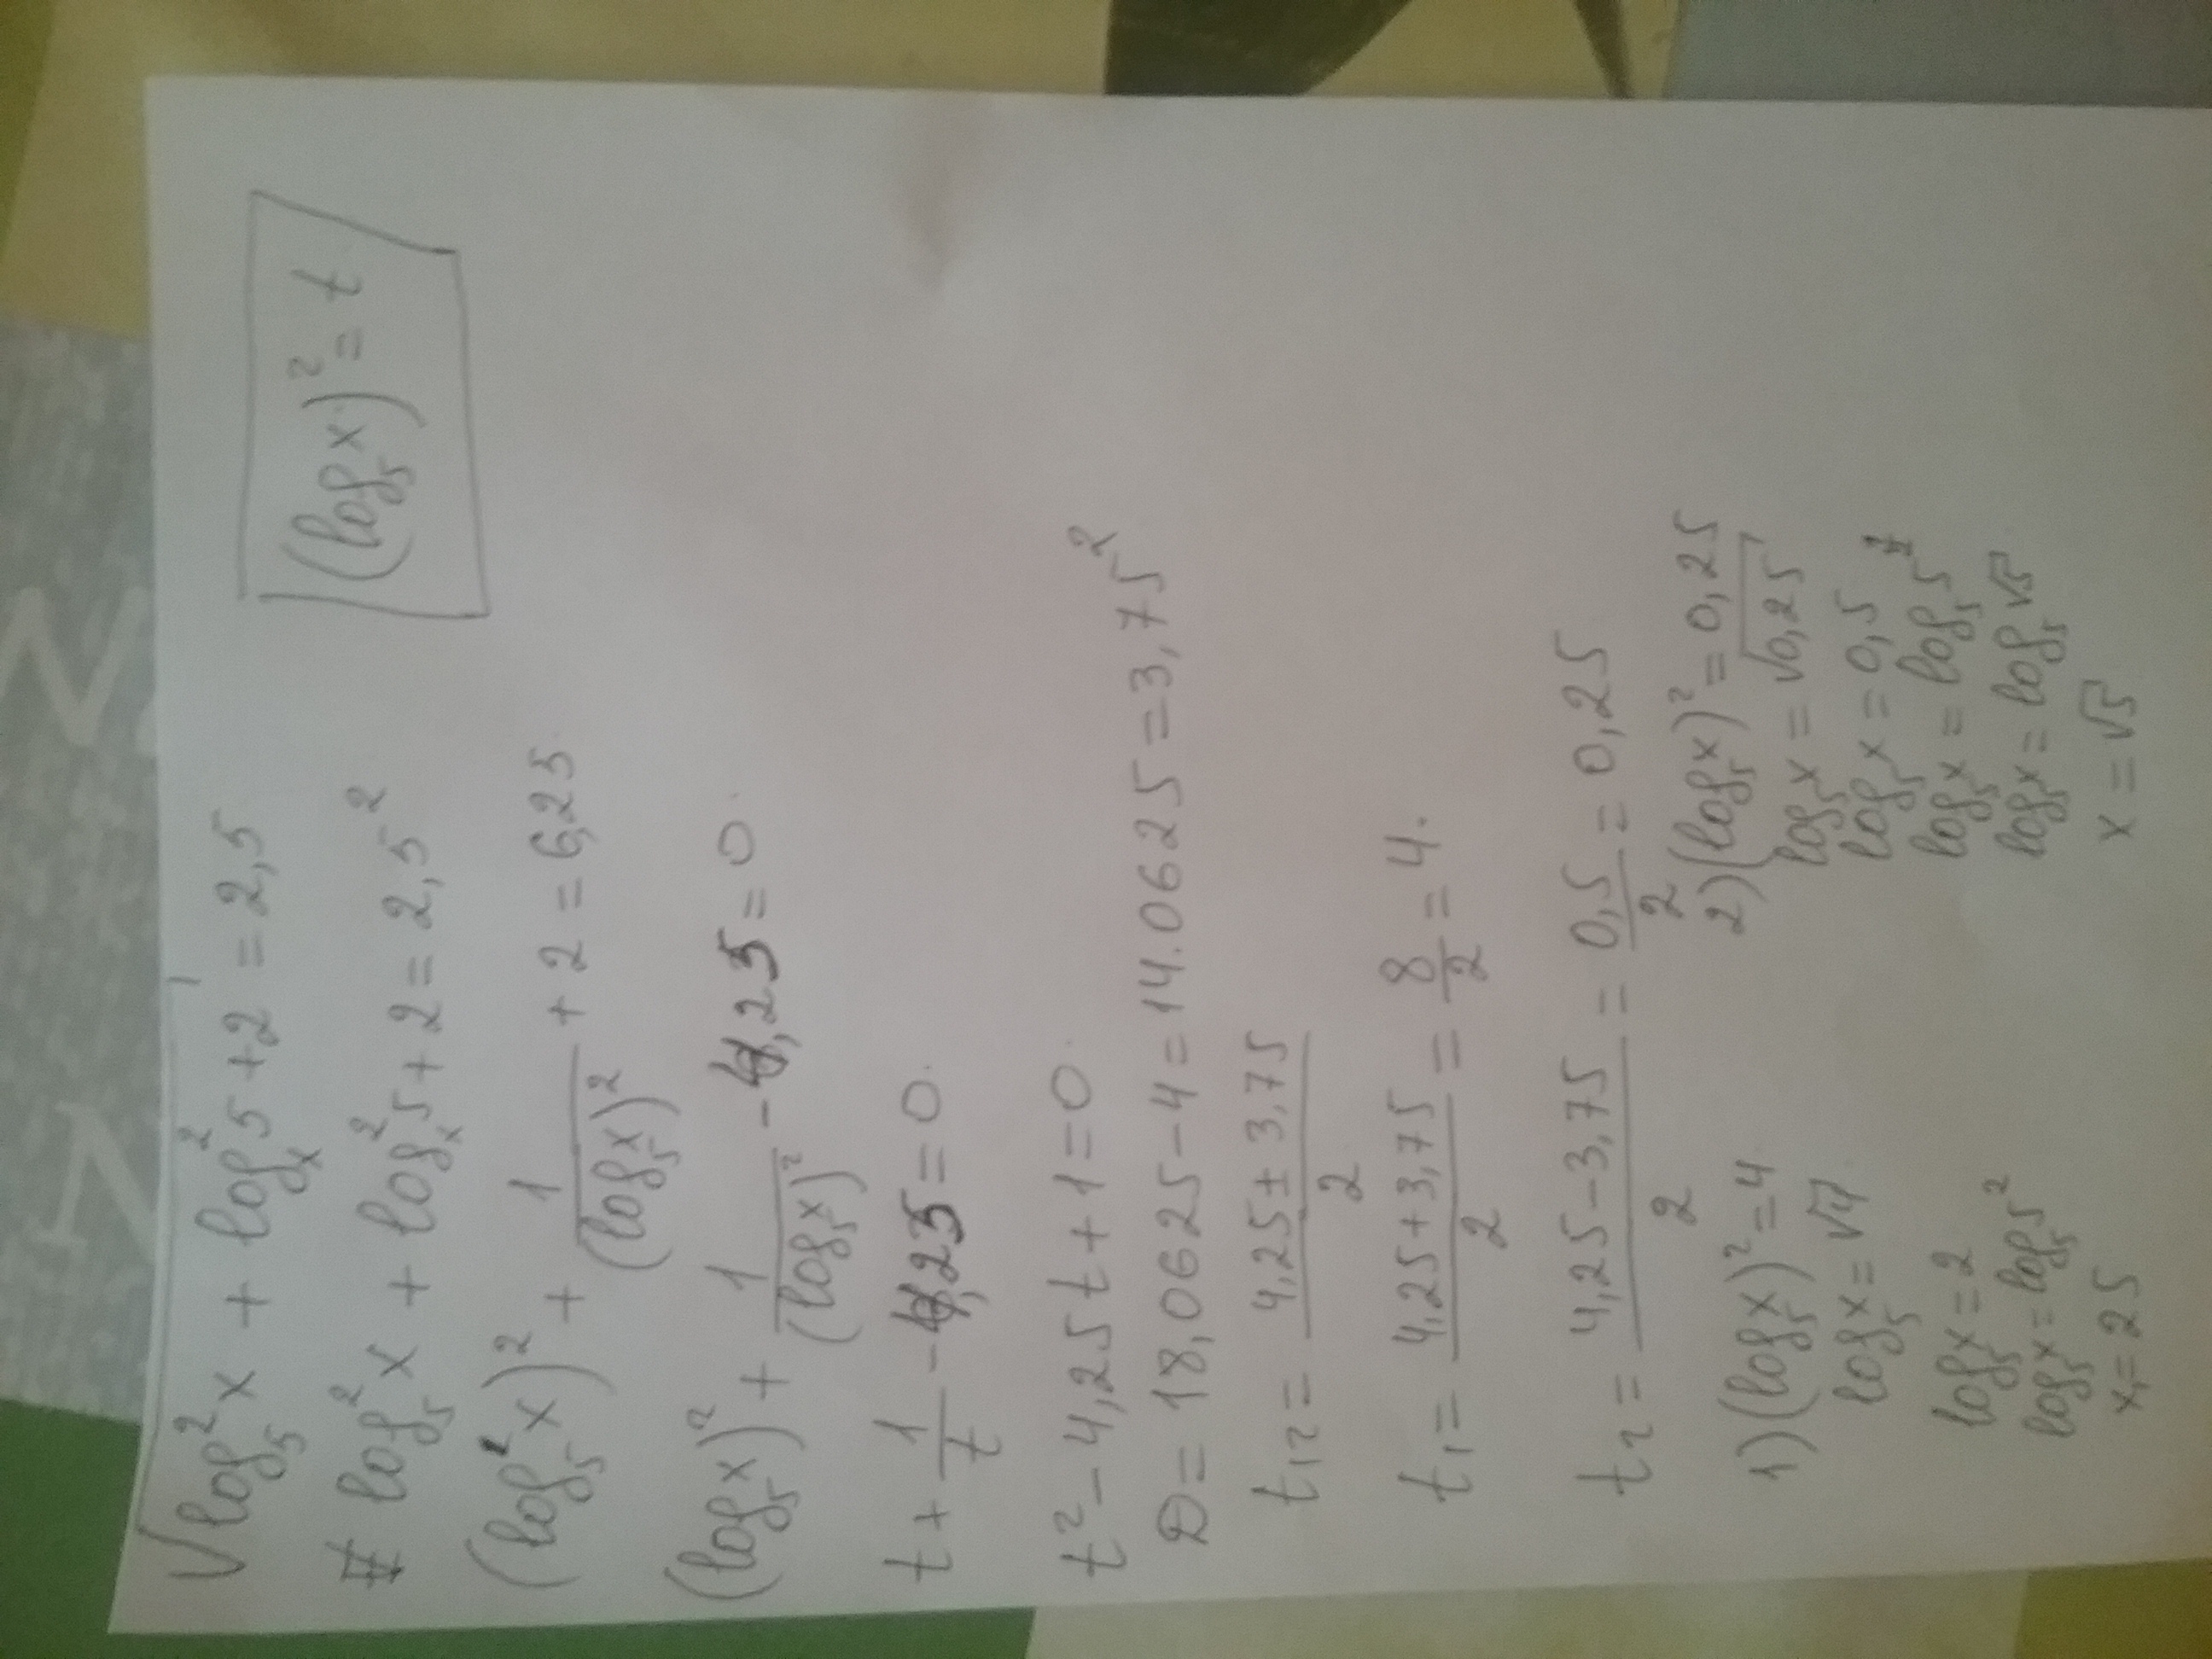 √(log₅²x + log²ₓ5 + 2) = 2,5
(log₅x)² = t
log₅²x + log²ₓ5 + 2 = 2,5²
(log₅x)² + 1/(log₅x)² + 2 = 6,25
(log₅x)² + 1/(log₅x)² - 4,25 = 0.
t + 1/t - 4,25 = 0.
t² - 4,25t + 1 = 0.
D = 18,0625 - 4 = 14.0625 = 3,75²
t₁₂ = (4,25 ± 3,75)/2
t₁ = (4,25 + 3,75)/2 = 8/2 = 4.
t₂ = (4,25 - 3,75)/2 = 0,5/2 = 0,25
1) (log₅x)² = 4
log₅x = √4
log₅x = 2
log₅x = log₅5²
x₁ = 25
2) (log₅x)² = 0,25
log₅x = √0,25
log₅x = 0,5
log₅x = log₅5^(1/2)
log₅x = log₅√5
x = √5